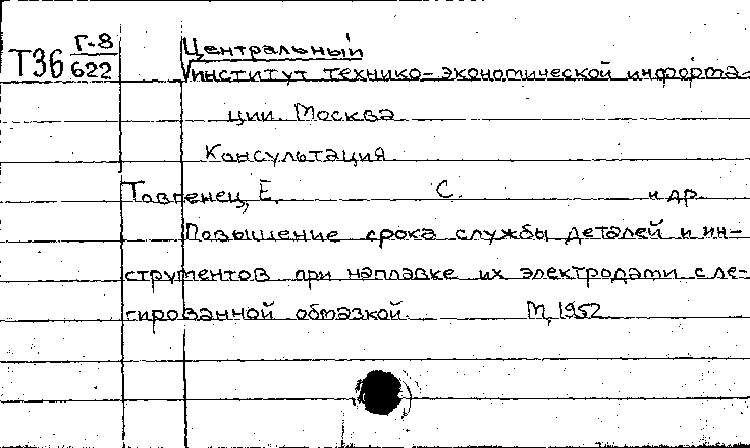 Т36 Г-8
622
Центральный
институт технико-экономической информа-
ции. Москва
Консультация
Товпенец, Е. С. и др.
Повышение срока службы деталей и ин-
струментов при наплавке их электродами с ле-
гированной обмазкой. М, 1952